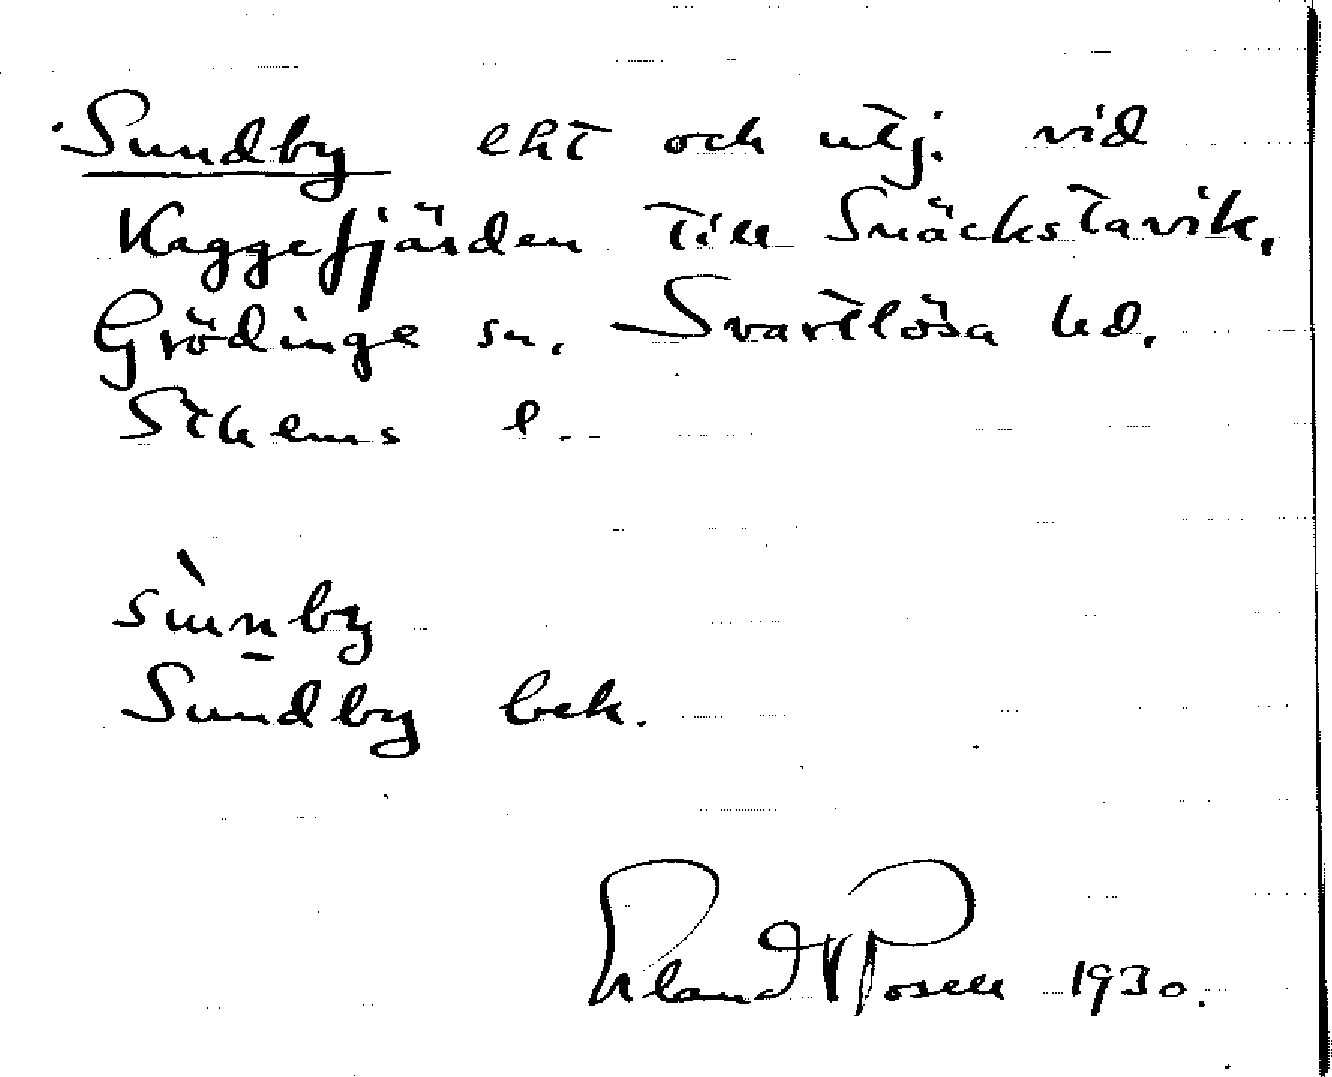 Sundby eht och utj. vid
Kaggefjärden till Snäckstavik,
Grödinge sn. Svartlösa hd.
Sthems l.
sùnn̲by
Sundby bek.
Erland Rosell 1930.